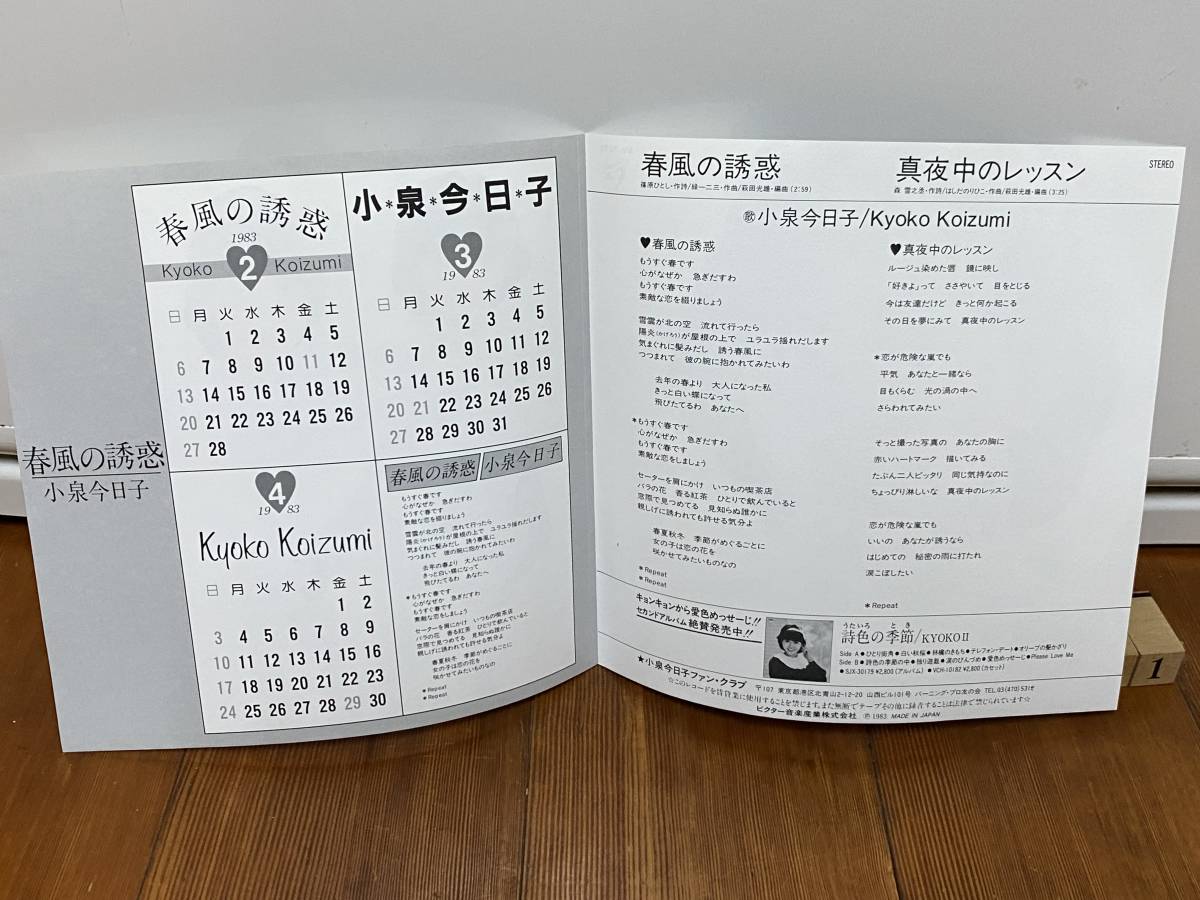 春風の誘惑
小泉今日子
春風の誘惑
1983
Kyoko 2 Koizumi
日 月 火 水 木 金 土
1 2 3 4 5
6 7 8 9 10 11 12
13 14 15 16 17 18 19
20 21 22 23 24 25 26
27 28
小*泉*今*日*子
3
1983
日 月 火 水 木 金 土
1 2 3 4 5
6 7 8 9 10 11 12
13 14 15 16 17 18 19
20 21 22 23 24 25 26
27 28 29 30 31
4
1983
Kyoko Koizumi
日 月 火 水 木 金 土
1 2
3 4 5 6 7 8 9
10 11 12 13 14 15 16
17 18 19 20 21 22 23
24 25 26 27 28 29 30
春風の誘惑 小泉今日子
もうすぐ春です
心がなぜか 急ぎだすわ
もうすぐ春です
素敵な恋を綴りましょう
雪雲が北の空 流れて行ったら
陽炎(かげろう)が屋根の上で ユラユラ揺れだします
気まぐれに髪みだし 誘う春風に
つつまれて 彼の腕に抱かれてみたいわ
去年の春より 大人になった私
きっと白い蝶になって
飛びたてるわ あなたへ
*もうすぐ春です
心がなぜか 急ぎだすわ
もうすぐ春です
素敵な恋をしましょう
セーターを肩にかけ いつもの喫茶店
バラの花 香る紅茶 ひとりで飲んでいると
窓際で見つめてる 見知らぬ誰かに
親しげに誘われても許せる気分よ
春夏秋冬 季節がめぐるごとに
女の子は恋の花を
咲かせてみたいものなの
*Repeat
*Repeat
春風の誘惑
篠原ひとし・作詩/緑一二三・作曲/萩田光雄・編曲(2:59)
真夜中のレッスン
森 雪之丞・作詩/はしだのりひこ・作曲/萩田光雄・編曲(3:25)
STEREO
歌小泉今日子/Kyoko Koizumi
♥春風の誘惑
もうすぐ春です
心がなぜか 急ぎだすわ
もうすぐ春です
素敵な恋を綴りましょう
雪雲が北の空 流れて行ったら
陽炎(かげろう)が屋根の上で ユラユラ揺れだします
気まぐれに髪みだし 誘う春風に
つつまれて 彼の腕に抱かれてみたいわ
去年の春より 大人になった私
きっと白い蝶になって
飛びたてるわ あなたへ
*もうすぐ春です
心がなぜか 急ぎだすわ
もうすぐ春です
素敵な恋をしましょう
セーターを肩にかけ いつもの喫茶店
バラの花 香る紅茶 ひとりで飲んでいると
窓際で見つめてる 見知らぬ誰かに
親しげに誘われても許せる気分よ
春夏秋冬 季節がめぐるごとに
女の子は恋の花を
咲かせてみたいものなの
*Repeat
*Repeat
♥真夜中のレッスン
ルージュ染めた唇 鏡に映し
「好きよ」って ささやいて 目をとじる
今は友達だけど きっと何か起こる
その日を夢にみて 真夜中のレッスン
*恋が危険な嵐でも
平気 あなたと一緒なら
目もくらむ 光の渦の中へ
さらわれてみたい
そっと撮った写真の あなたの胸に
赤いハートマーク 描いてみる
たぶん二人ピッタリ 同じ気持なのに
ちょっぴり淋しいな 真夜中のレッスン
恋が危険な嵐でも
いいの あなたが誘うなら
はじめての 秘密の雨に打たれ
涙こぼしたい
*Repeat
キョンキョンから愛色めっせーじ!!
セカンドアルバム絶賛発売中!!
うたいろ とき
詩色の季節/KYOKO II
Side A●ひとり街角●白い秋桜●林檎のきもち●テレフォン・デート●オリーブの髪かざり
Side B●詩色の季節の中●独り遊戯●涙のびんづめ●愛色めっせーじ●Please Love Me
●SJX-30179 ¥2,800(アルバム) ●VCH-10182 ¥2,800(カセット)
★小泉今日子ファン・クラブ 〒107 東京都港区北青山2-12-20 山西ビル101号 バーニング・プロ友の会 TEL.03(470)531
☆このレコードを賃貸業に使用することを禁じます。また無断でテープその他に録音することは法律で禁じられています☆
ビクター音楽産業株式会社 Ⓟ 1983 MADE IN JAPAN
1